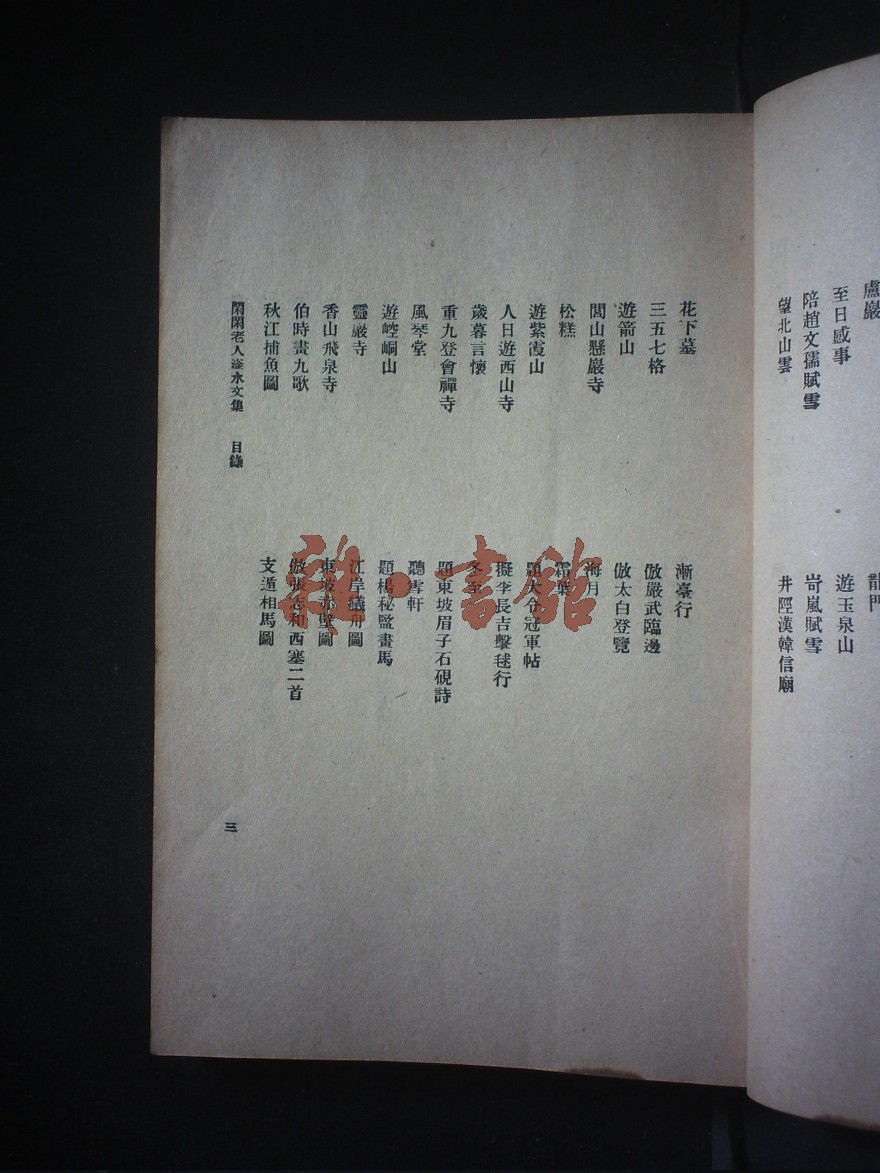 盧巖
至日感事
陪趙文孺賦雪
望北山雲
龍門
遊玉泉山
岢嵐賦雪
井陘漢韓信廟
花下墓
三五七格
遊箭山
閭山懸巖寺
松糕
遊紫霞山
人日遊西山寺
歲暮言懷
重九登會禪寺
風琴堂
遊崆峒山
靈巖寺
香山飛泉寺
伯時畫九歌
秋江捕魚圖
漸臺行
倣嚴武臨邊
倣太白登覽
海月
霜葉
題大令冠軍帖
擬李長吉擊毬行
冬至
題東坡眉子石硯詩
聽雪軒
題楊秘監畫馬
江岸艤舟圖
東坡赤壁圖
倣張志和西塞二首
支遁相馬圖
閑閑老人滏水文集 目錄
三
雜·書館